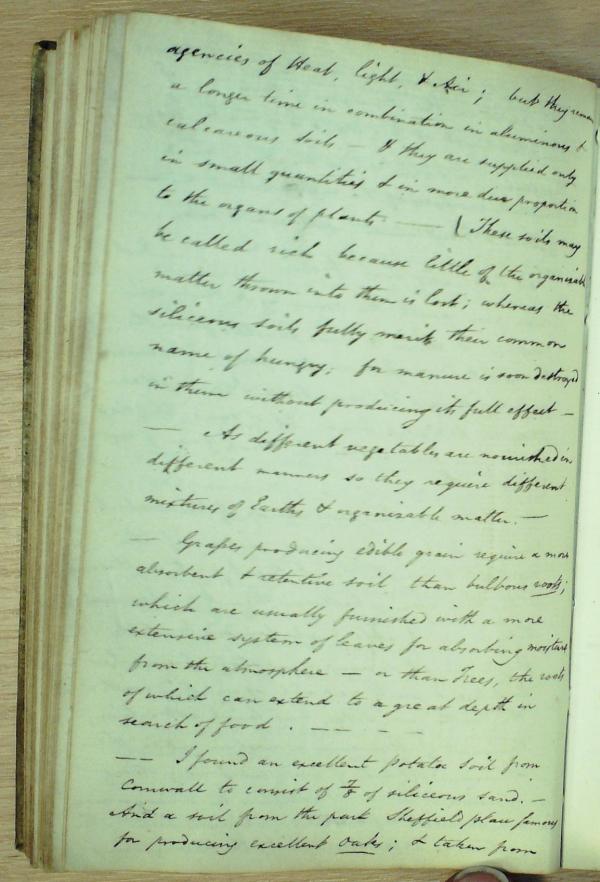 agencies of Heat, light, & Air; but they remain
a longer time in combination in aluminous &
calcareous soils — & they are supplied only
in small quantities & in more due proportion
to the organs of plants —— (These soils may
be called rich because little of the organizable
matter thrown into them is lost; whereas the
siliceous soils fully merit their common
name of hungry; for manure is soon destroyed
in them without producing its full effect —
— As different vegetables are nourished in
different manners so they require different
mixtures of Earths & organizable matter. —
— Grasses producing edible grain require a more
absorbent & retentive soil than bulbous roots;
which are usually furnished with a more
extensive system of leaves for absorbing moisture
from the atmosphere — or than Trees, the roots
of which can extend to a great depth in
search of food . — — — -
—— I found an excellent potatoe soil from
Cornwall to consist of 7/8 of siliceous sand. —
And a soil from the park Sheffield place famous
for producing excellent oaks; & taken from